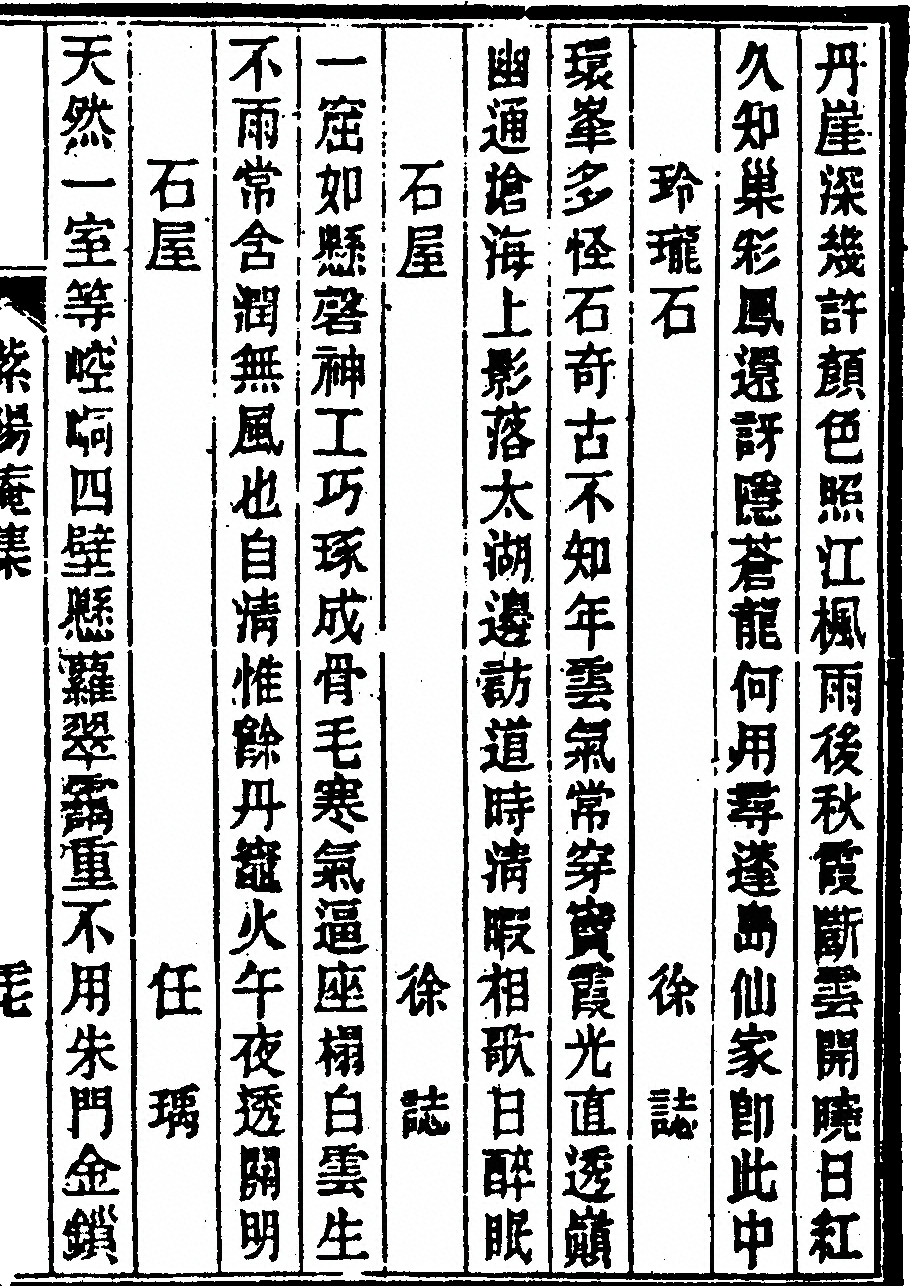 丹崖深幾許顏色照江楓雨後秋霞斷雲開曉日紅
久知巢彩鳳還訝隱蒼龍何用尋蓬島仙家卽此中
玲瓏石 徐 誌
環峯多怪石奇古不知年雲氣常穿竇霞光直透巓
幽通滄海上影落太湖邊訪道時淸暇相歌日醉眠
石屋 徐 誌
一窟如懸磬神工巧琢成骨毛寒氣逼座榻白雲生
不雨常含潤無風也自淸惟餘丹竈火午夜透關明
石屋 任 瑀
天然一室等崆㟏四壁懸蘿翠靄重不用朱門金鎖
紫陽庵集